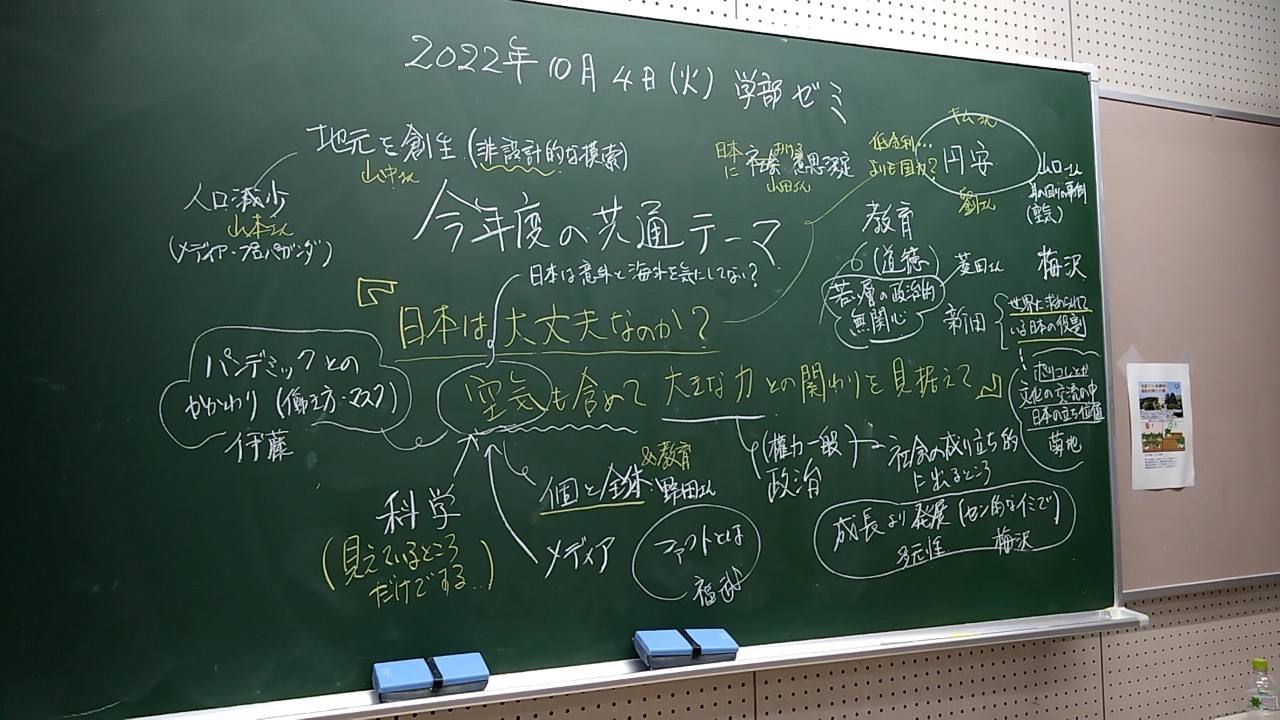 2022年10月4日(火) 学部ゼミ
地元を創生(非設計的な模索)
山中さん
人口減少
山本さん
(メディア・プロパガンダ)
日本に 社会における 意思決定
山田さん
低金利…
よりも国力?
キムさん
円安
劉さん
山口さん
身の回りの事例
今年度の共通テーマ
日本は意外と海外を気にしてない?
『日本は大丈夫なのか?
空気も含めて 大きな力との関わりを見据えて』
教育
(道徳)
菱田さん
若い層の政治的
無関心
新田
梅沢
世界に求められて
いる日本の役割
ポリコレとか
文化の交流の中
日本の立ち位置
菊地
パンデミックとの
かかわり(働き方・マスク)
伊藤
(権力一般)
政治
社会の成り立ち的
に出るところ
個と全体・野田さん
&教育
科学
(見えているところ
だけでする…)
メディア
ファクトとは
福武
成長より発展(センのなイミで)
多元性 梅沢